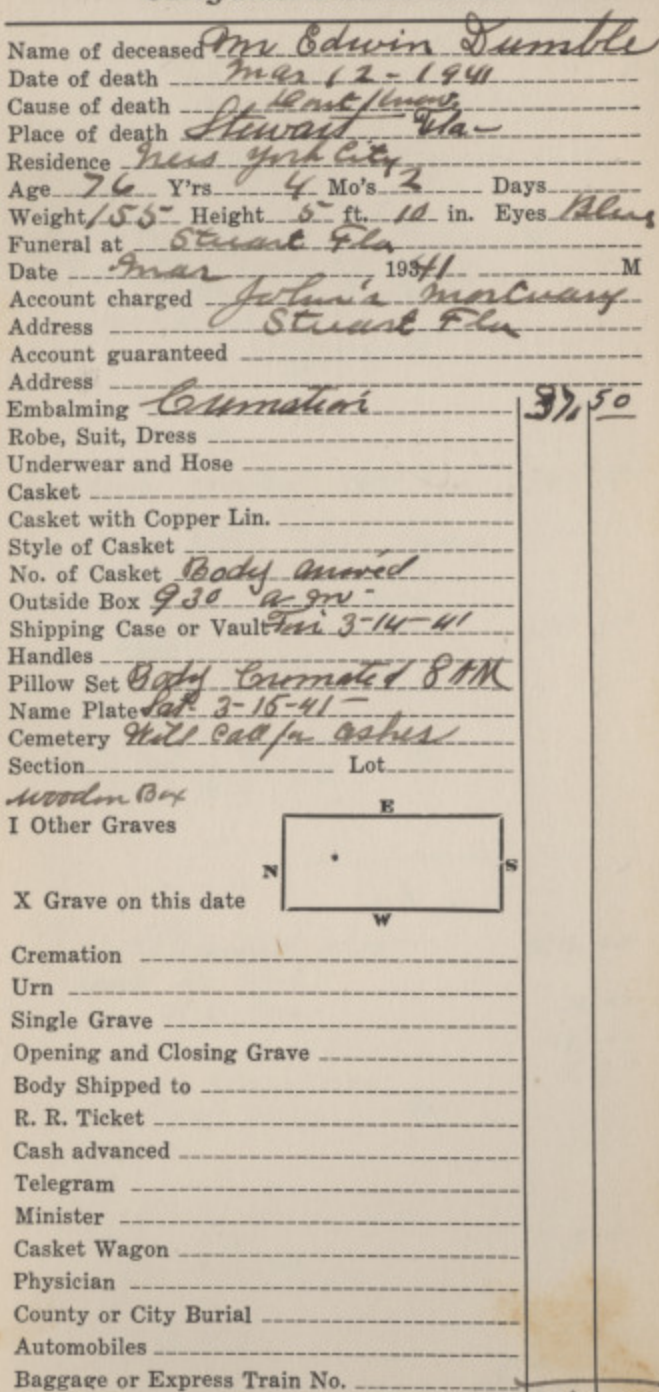 Name of deceased Mr Edwin Dumble
Date of death Mar 12-1941
Cause of death Dont Know
Place of death Stewart Fla-
Residence New York City
Age 76 Y'rs 4 Mo's 2 Days
Weight 155 Height 5 ft. 10 in. Eyes Blue
Funeral at Stuart Fla
Date Mar 1941 M
Account charged John's Mortuary
Address Stuart Fla
Account guaranteed
Address
Embalming Cremation 37.50
Robe, Suit, Dress
Underwear and Hose
Casket
Casket with Copper Lin.
Style of Casket
No. of Casket Body arrived
Outside Box 930 a-m-
Shipping Case or Vault Fri 3-14-41
Handles
Pillow Set Body Cremated 8 AM
Name Plate Sat 3-15-41-
Cemetery Will Call for ashes
Section Lot
Wooden Box
I Other Graves
E
N
S
X Grave on this date
W
Cremation
Urn
Single Grave
Opening and Closing Grave
Body Shipped to
R. R. Ticket
Cash advanced
Telegram
Minister
Casket Wagon
Physician
County or City Burial
Automobiles
Baggage or Express Train No.